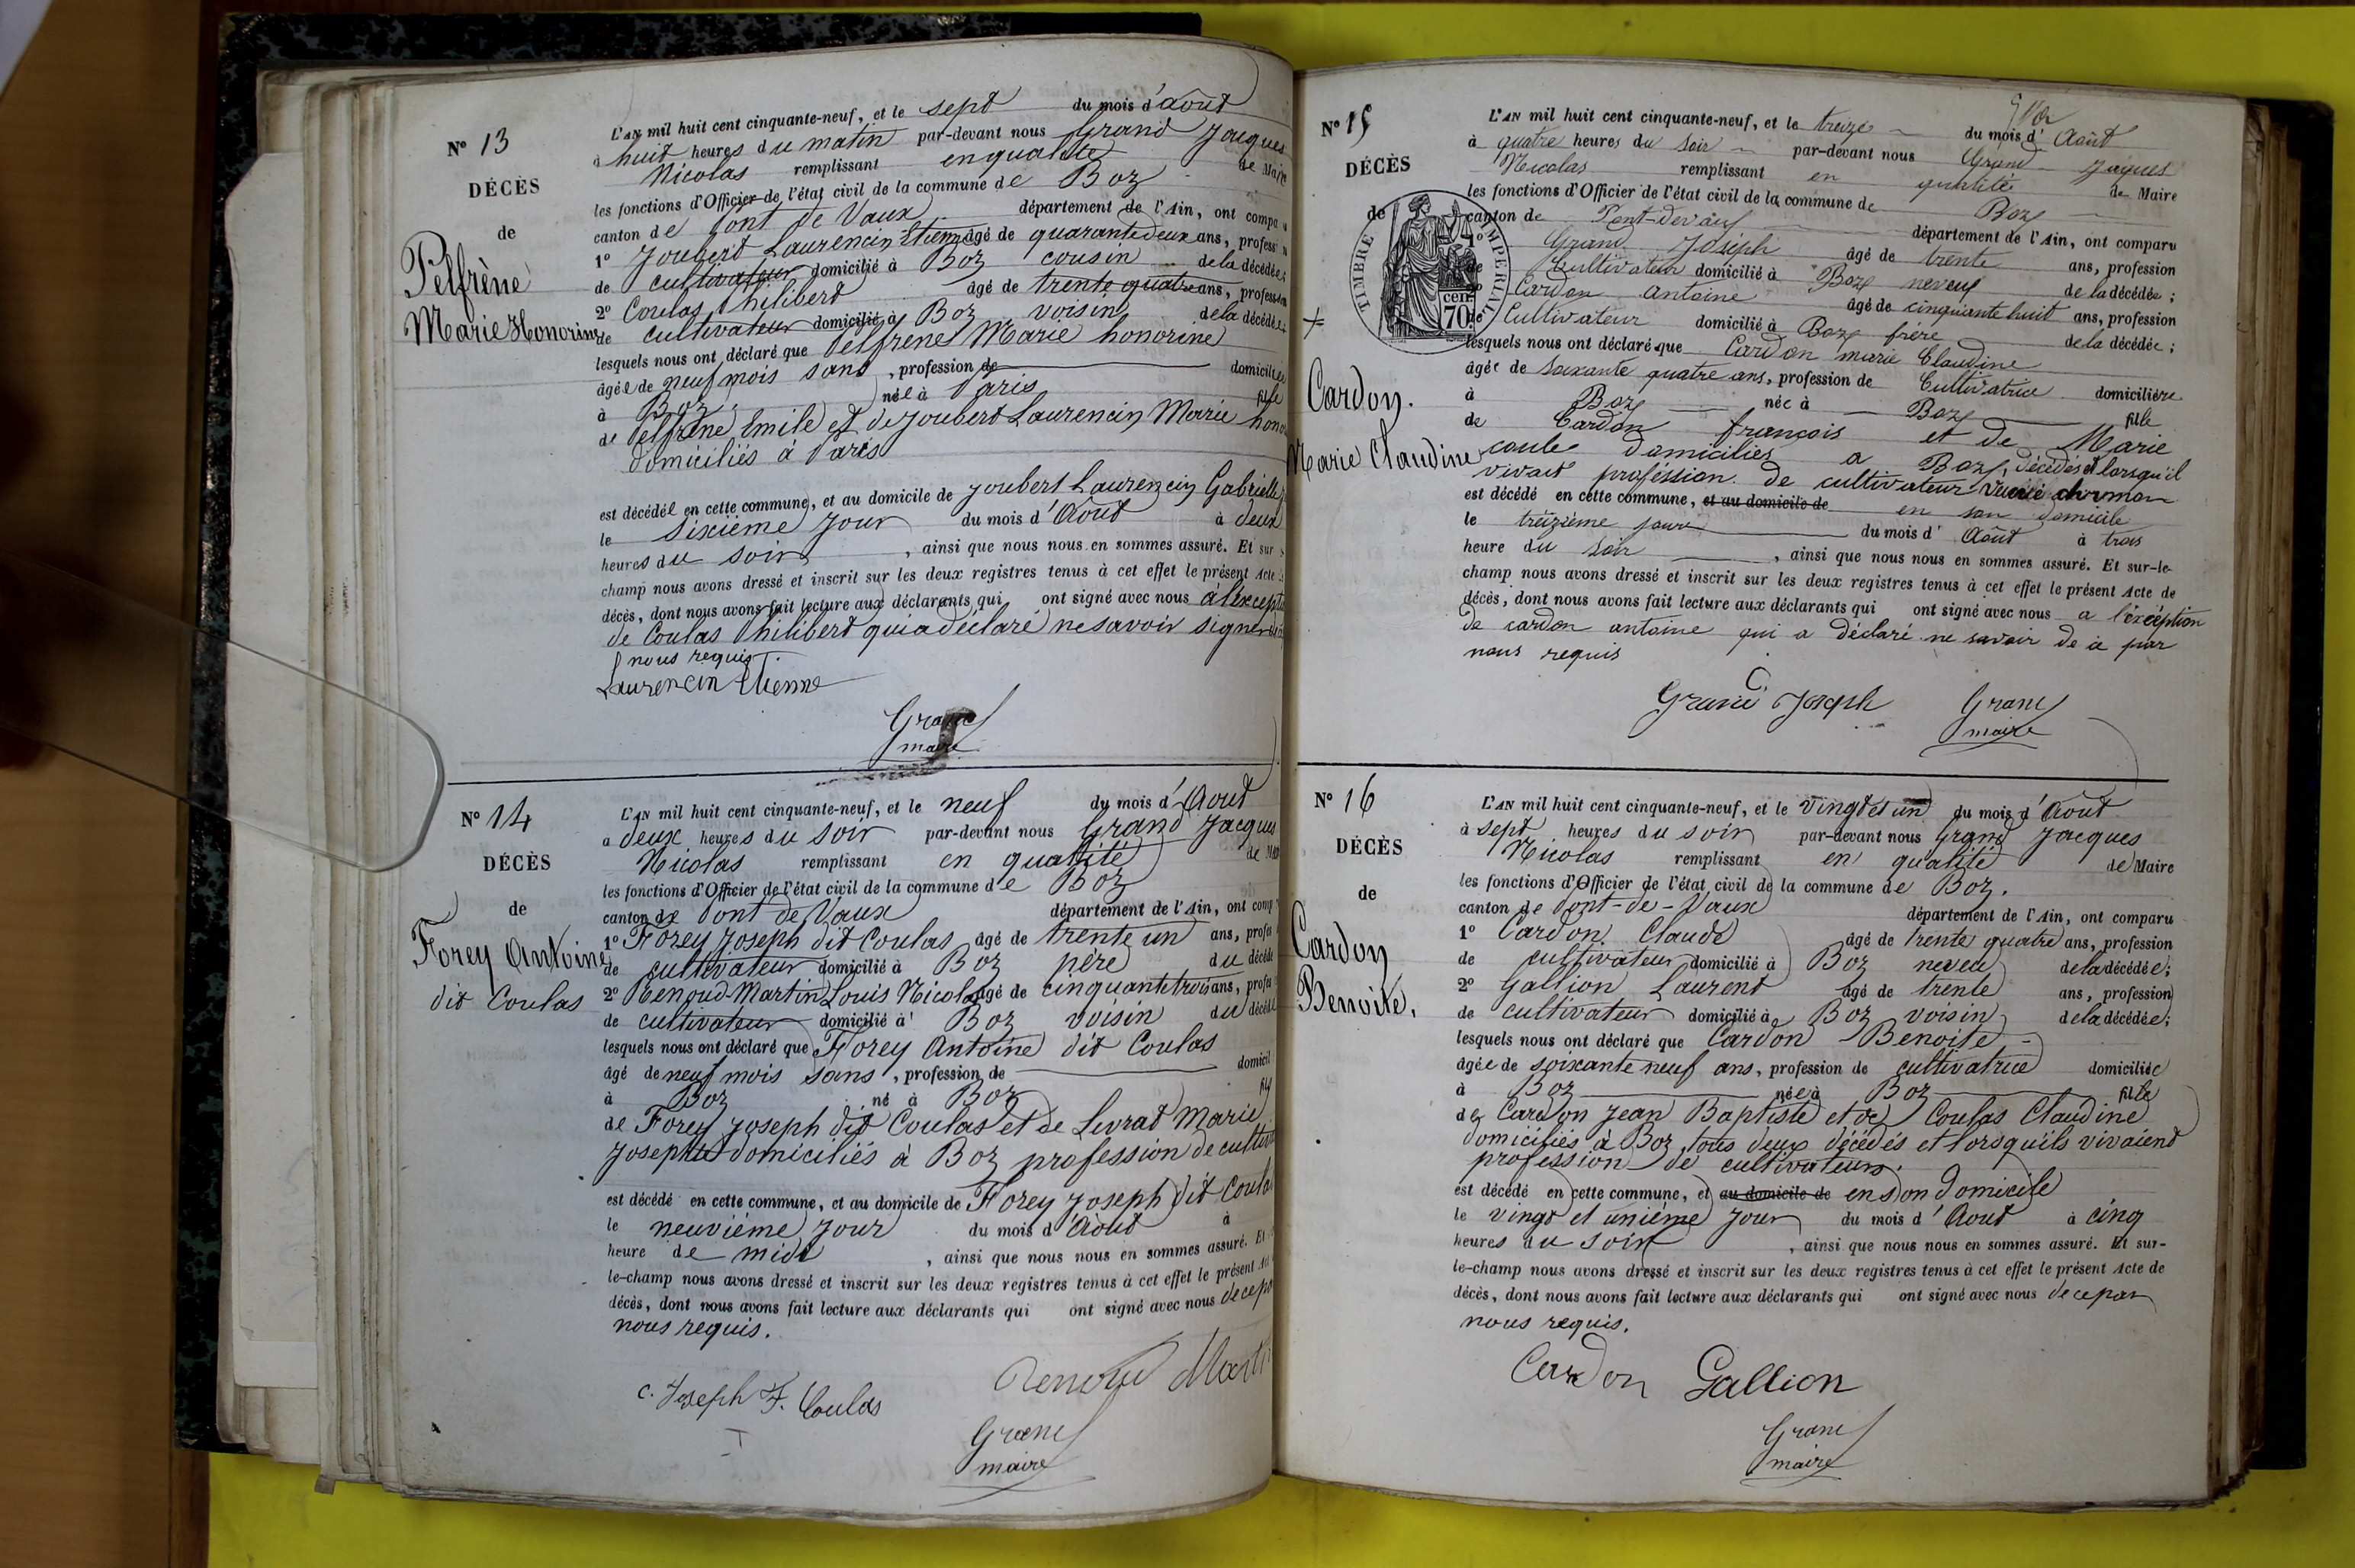 N° 13
DÉCÈS
de
Pelfrène
Marie Honorine
L'AN mil huit cent cinquante-neuf, et le sept du mois d'août
à huit heures du matin par-devant nous Grand Jacques
Nicolas remplissant en qualité de Maire
les fonctions d'Officier de l'état civil de la commune de Boz
canton de Pont de Vaux département de l'Ain, ont compa
1° Joubert Laurencin Etienne âgé de quarante deux ans, profess
de cultivateur domicilié à Boz cousin de la décédée
2° Coulas Philibert âgé de trente quatre ans, profession
de cultivateur domicilié à Boz voisin de la décédée
lesquels nous ont déclaré que Pelfrene Marie honorine
âgée de neuf mois sans, profession de domiciliée
à Boz née à Paris fille
de Pelfrène Emile et de Joubert Laurencin Marie hono
domiciliés à Paris
est décédée en cette commune, et au domicile de Joubert Laurencin Gabrielle
le sixième jour du mois d'Août à deux
heures du soir, ainsi que nous nous en sommes assuré. Et sur
champ nous avons dressé et inscrit sur les deux registres tenus à cet effet le présent Acte
décès, dont nous avons fait lecture aux déclarants qui ont signé avec nous à l'excepti
de Coulas Philibert qui a déclaré ne savoir signer
nous requis.
Laurencin Etienne
Grand
maire
N° 14
DÉCÈS
de
Forey Antoine
dit Coulas
L'AN mil huit cent cinquante-neuf, et le neuf du mois d'Aout
à deux heures du soir par-devant nous Grand Jacques
Nicolas remplissant en qualité de Mai
les fonctions d'Officier de l'état civil de la commune de Boz
canton de Pont de Vaux département de l'Ain, ont comp
1° Forey Joseph dit Coulas âgé de trente un ans, profes
de cultivateur domicilié à Boz père du décédé
2° Renoud-Martin Louis Nicolas âgé de cinquante trois ans, profes
de cultivateur domicilié à Boz voisin du décédé
lesquels nous ont déclaré que Forey Antoine dit Coulas
âgé de neuf mois sans, profession de domicil
à Boz né à Boz fils
de Forey Joseph dit Coulas et de Livrat Marie
Josephte domiciliés à Boz profession de cultiv
est décédé en cette commune, et au domicile de Forey Joseph dit Coulas
le neuvième jour du mois d'Aout à
heure de midi, ainsi que nous nous en sommes assuré. Et
le-champ nous avons dressé et inscrit sur les deux registres tenus à cet effet le présent Act
décès, dont nous avons fait lecture aux déclarants qui ont signé avec nous de ce par
nous requis.
C. Joseph F. Coulas
Renoud Marti
Grand
maire
N° 15
DÉCÈS
de
TIMBRE IMPERIAL
70 cen.
Cardon.
Marie Claudine
L'AN mil huit cent cinquante-neuf, et le treize du mois d'Août
à quatre heures du soir par-devant nous Grand Jaques
Nicolas remplissant en qualité de Maire
les fonctions d'Officier de l'état civil de la commune de Boz
canton de Pont-devaux département de l'Ain, ont comparu
1° Grand Joseph âgé de trente ans, profession
de Cultivateur domicilié à Boz neveux de la décédée;
2° Cardon Antoine âgé de cinquante huit ans, profession
de Cultivateur domicilié à Boz frère de la décédée;
lesquels nous ont déclaré que Cardon marie Claudine
âgée de soixante quatre ans, profession de Cultivatrice domiciliée
à Boz née à Boz fille
de Cardon françois et de Marie
domiciliés a Boz, décédés et lorsqu'il
vivait proféssion de cultivateur
est décédé en cette commune, et au domicile de en son domicile
le treizième jour du mois d'Août à trois
heure du soir, ainsi que nous nous en sommes assuré. Et sur-le-
champ nous avons dressé et inscrit sur les deux registres tenus à cet effet le présent Acte de
décès, dont nous avons fait lecture aux déclarants qui ont signé avec nous a l'éxcéption
de cardon antoine qui a déclaré ne savoir de ce par
nous requis
Grand Joseph
Grand
maire
N° 16
DÉCÈS
de
Cardon
Benoite.
L'AN mil huit cent cinquante-neuf, et le vingt et un du mois d'Aout
à sept heures du soir par-devant nous Grand Jacques
Nicolas remplissant en qualité de Maire
les fonctions d'Officier de l'état civil de la commune de Boz.
canton de Pont-de-Vaux département de l'Ain, ont comparu
1° Cardon Claude âgé de trente quatre ans, profession
de cultivateur domicilié à Boz neveu de la décédée;
2° Gallion Laurent âgé de trente ans, profession
de cultivateur domicilié à Boz voisin de la décédée;
lesquels nous ont déclaré que Cardon Benoite
âgée de soixante neuf ans, profession de cultivatrice domiciliée
à Boz née à Boz fille
de Cardon Jean Baptiste et de Coulas Claudine
domiciliés à Boz, tous deux décédés et lorsqu'ils vivaient
profession de cultivateurs.
est décédé en cette commune, et au domicile de en son domicile
le vingt et unième jour du mois d'Aout à cinq
heures du soir, ainsi que nous nous en sommes assuré. Et sur-
le-champ nous avons dressé et inscrit sur les deux registres tenus à cet effet le présent Acte de
décès, dont nous avons fait lecture aux déclarants qui ont signé avec nous de ce par
nous requis.
Cardon Gallion
Grand
maire